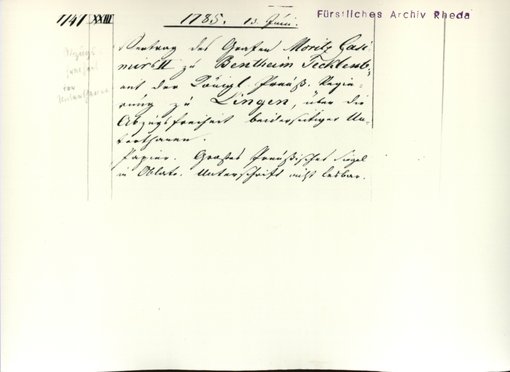 1/41 XXIII 1785. 13. Juni. Fürstliches Archiv Rheda
Vertrag des Grafen Moritz Casi-
mir II zu Bentheim Tecklenb.
mit der Königl. Preuß. Regie-
rung zu Lingen, über die
Abzugsfreiheit beiderseitiger Un-
terthanen.
Papier. Großes Preußisches Siegel
in Oblate. Unterschrift nicht lesbar.